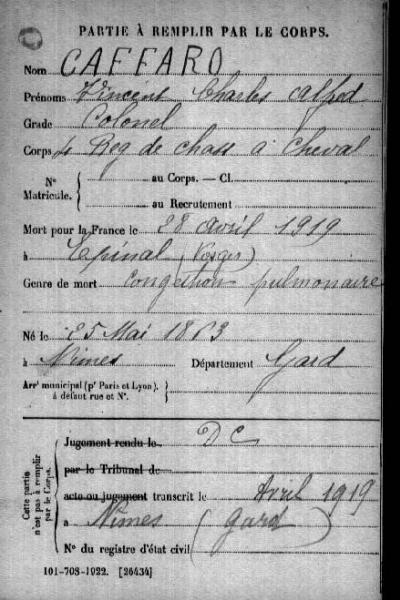 PARTIE À REMPLIR PAR LE CORPS.
Nom CAFFARO
Prénoms Vincent Charles Alfred
Grade Colonel
Corps 4 Reg de chass à Cheval
N° Matricule. { au Corps. — Cl.
au Recrutement
Mort pour la France le 28 avril 1919
à Epinal (Vosges)
Genre de mort congestion pulmonaire
Né le 25 Mai 1863
à Nimes Département Gard
Arrt municipal (pr Paris et Lyon), à défaut rue et N°.
Cette partie n'est pas à remplir par le Corps.
Jugement rendu le DC
par le Tribunal de
acte ou jugement transcrit le Avril 1919
à Nimes (Gard)
N° du registre d'état civil
101-708-1922. [26434]